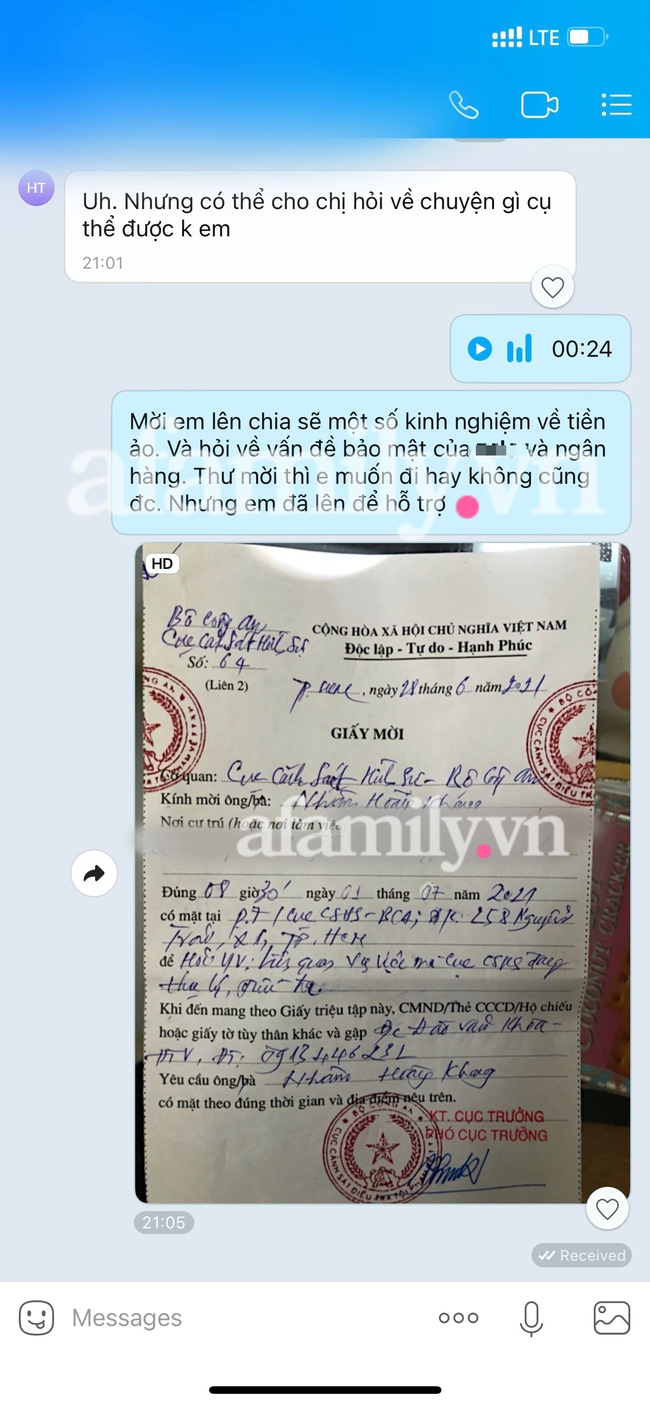 LTE
HT
Uh. Nhưng có thể cho chị hỏi về chuyện gì cụ
thể được k em
21:01
00:24
Mời em lên chia sẽ một số kinh nghiệm về tiền
ảo. Và hỏi về vấn đề bảo mật của và ngân
hàng. Thư mời thì e muốn đi hay không cũng
đc. Nhưng em đã lên để hỗ trợ
afamily.vn
HD
Bộ Công an
Cục Cảnh Sát Hình Sự
CỘNG HÒA XÃ HỘI CHỦ NGHĨA VIỆT NAM
Độc lập - Tự do - Hạnh Phúc
Số: 64
(Liên 2)
, ngày 28 tháng 6 năm 2021
GIẤY MỜI
Cơ quan: Cục Cảnh Sát Hình Sự - Bộ Công an
Kính mời ông/bà: Nhâm Hoàng Khang
Nơi cư trú (hoặc nơi làm việc
afamily.vn
Đúng 08 giờ 30' ngày 01 tháng 07 năm 2021
có mặt tại P.7 / Cục CSHS - BCA; đ/c: 258 Nguyễn
Trãi, Q1, TP. HCM
để liên quan vụ việc mà Cục CSHS đang
thụ lý,
Khi đến mang theo Giấy triệu tập này, CMND/Thẻ CCCD/Hộ chiếu
hoặc giấy tờ tùy thân khác và gặp Đ/c Đào Văn Khoa -
ĐTV, ĐT: 0913446231
Yêu cầu ông/bà Nhâm Hoàng Khang
có mặt theo đúng thời gian và địa điểm nêu trên.
KT. CỤC TRƯỞNG
PHÓ CỤC TRƯỞNG
COCONUT CRACKER
21:05
Received
Messages